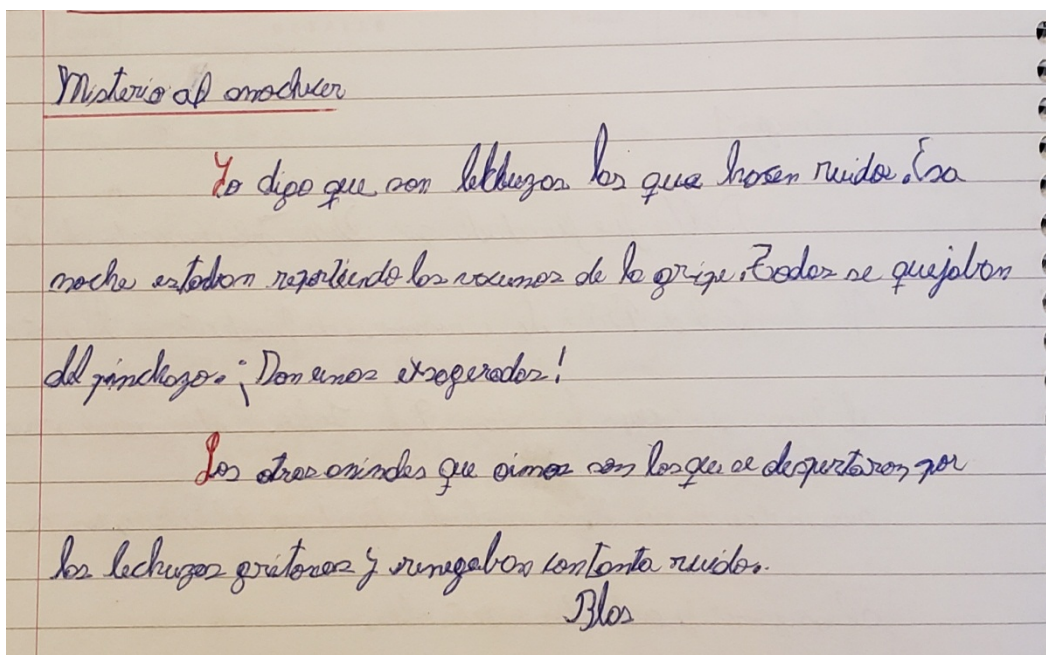 Misterio al anochecer
Yo digo que son lechuzas las que hacen ruido. Esa
noche estaban repartiendo las vacunas de la gripe. Todas se quejaban
del pinchazo. ¡Son unas exageradas!
Los otros animales que oimos son los que se despertaron por
las lechuzas gritonas y renegaban con tanto ruido.
Blas